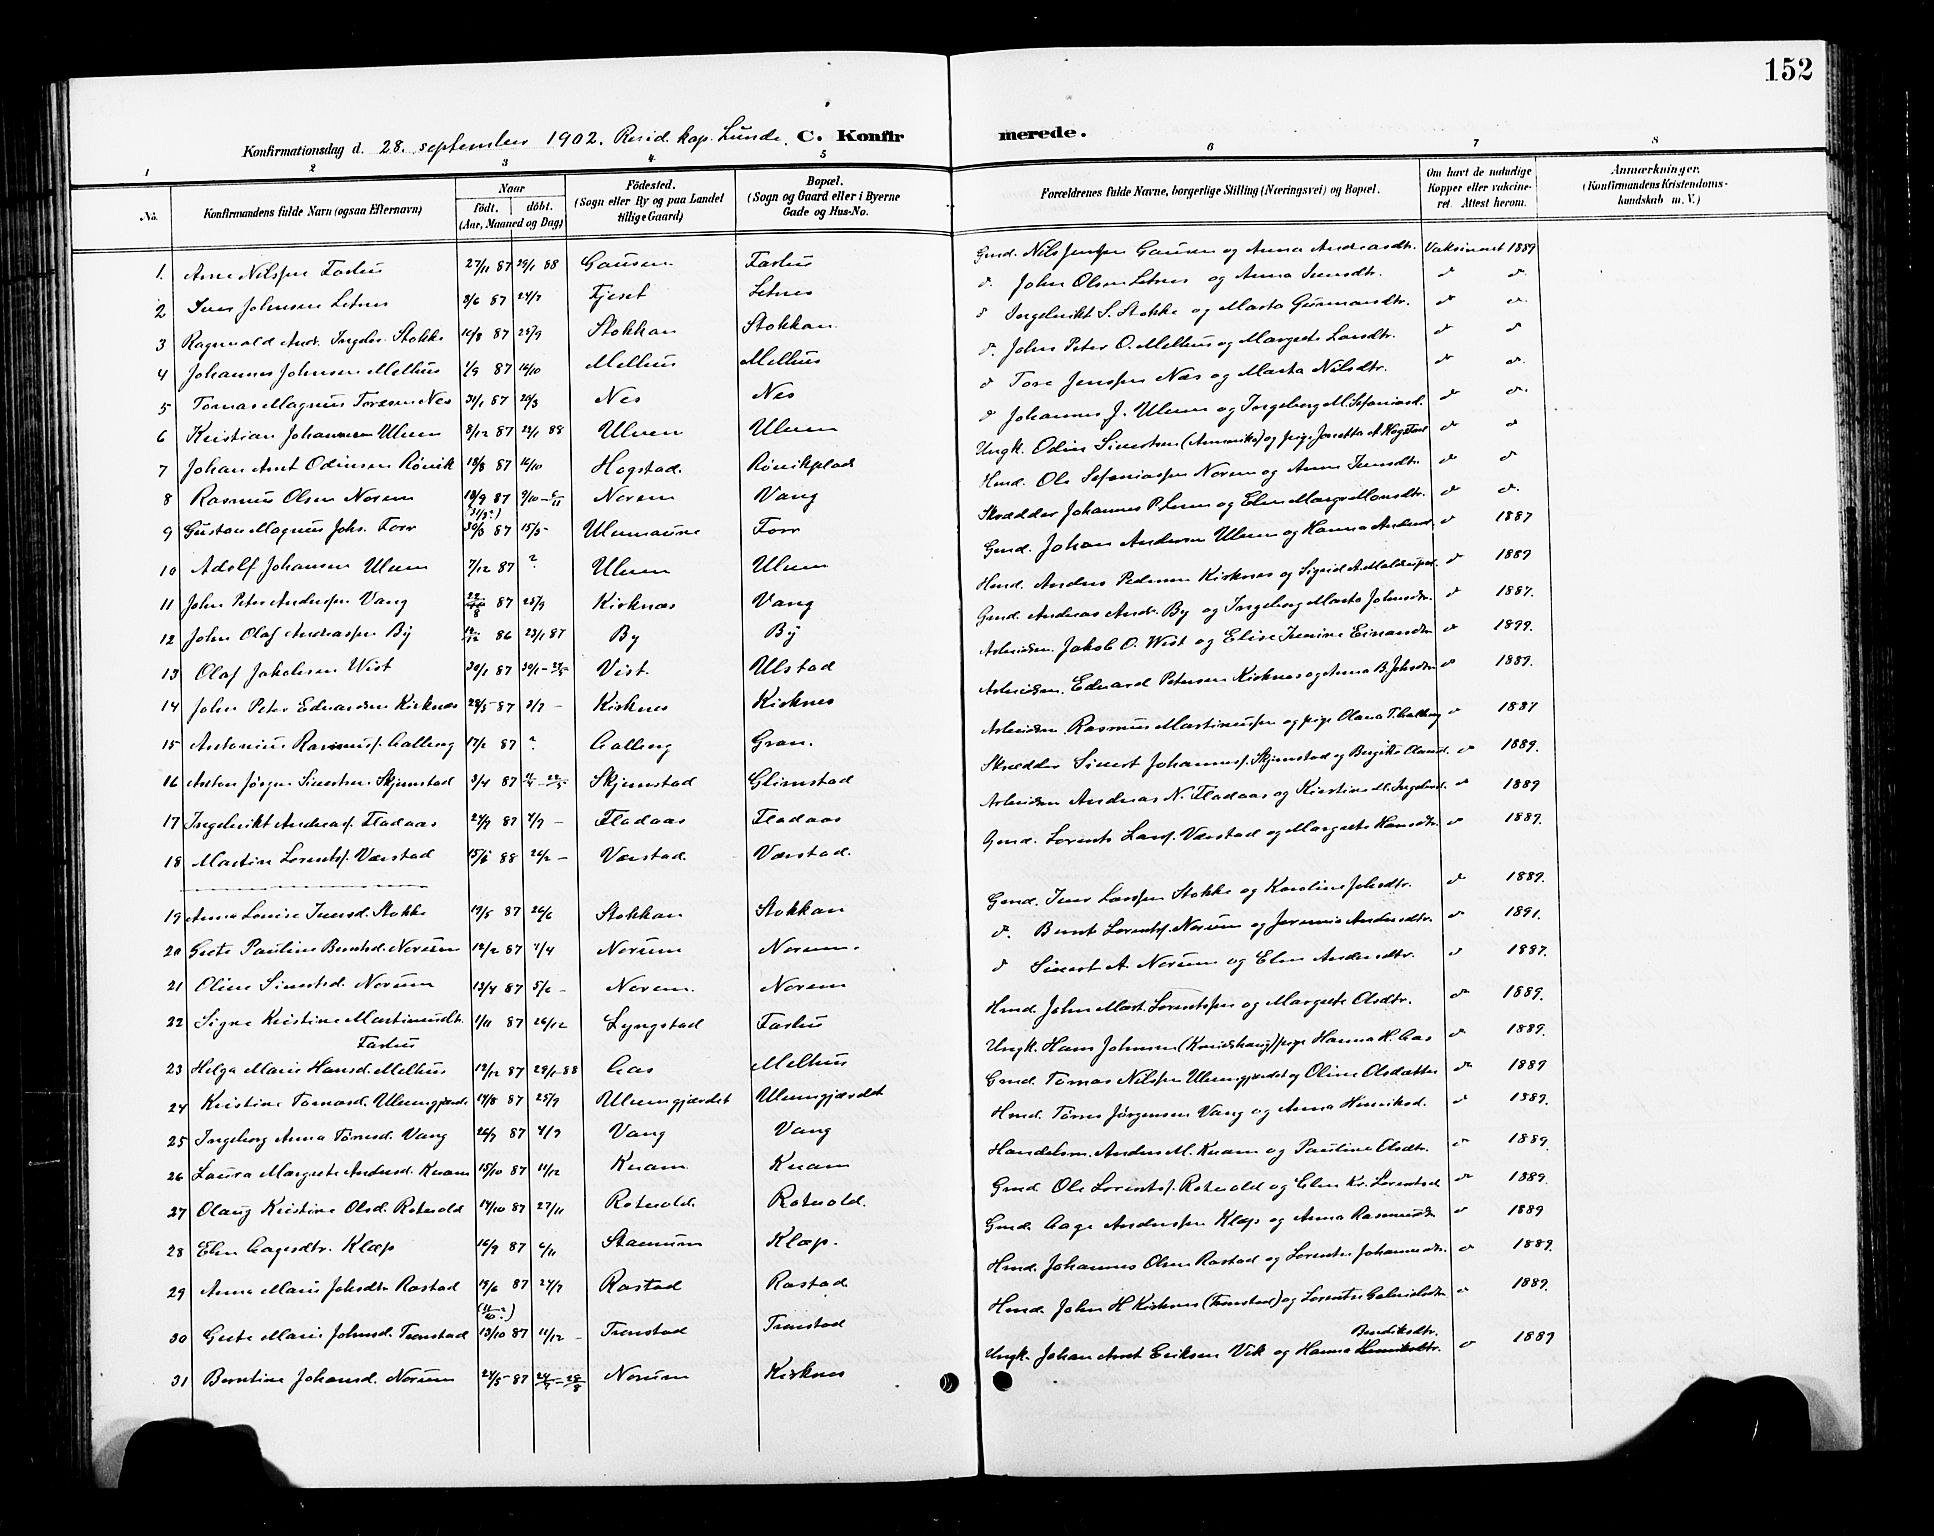 152
Konfirmationsdag d. 28. september 1902. Resid. kap. Lunde. C. Konfirmerede.
1 2 3 4 5 6 7 8
No. Konfirmandens fulde Navn (ogsaa Efternavn) Naar födt. döbt. (Aar, Maaned og Dag) Födested. (Sogn eller By og paa Landet tillige Gaard) Bopæl. (Sogn og Gaard eller i Byerne Gade og Hus-No. Forældrenes fulde Navne, borgerlige Stilling (Næringsvei) og Bopæl. Om havt de naturlige Kopper eller vaccineret. Attest herom. Anmærkninger. (Konfirmandens Kristendomskundskab m. V.)
1. Arne Nilssen Faslus 27/11 87 29/1 88 Gausen Gmd. Nils Jenssen Gausen og Anna Andreasdtr. Vaksineret 1889
2 Iver Johnsen Letnes 3/6 87 24/7 Fjeset Letnes d. John Olsen Letnes og Anna Iversdtr. d d.
3 Ragnvald Andr. Ingebr. Stokke 16/8 87 25/9 Stokkan Stokkan d Ingebrikt S. Stokke og Marta Gunnarsdtr. d d.
4 Johannes Johnsen Melhus 1/9 87 16/10 Melhus Melhus d. John Peter O. Melhus og Margrete Larsdtr. d d
5 Tomas Magnus Toresen Nes 31/1 87 20/3 Nes Nes d Tore Jenssen Næs og Marta Nilsdtr. d d.
6 Kristian Johannesen Ulven 8/12 87 22/1 88 Ulven Ulven d Johannes J. Ulven og Ingeborg M. Sefaniasd. d d.
7 Johan Arnt Odinsen Rönik 13/8 87 16/10 Hogstad. Rönikplads Ungk. Odin Sivertsen (Amerika) og pige Jonetta A. Hogstad d d
8 Rasmus Olsen Norem 18/9 87 9/10 - 6/11 Norem Vang Hmd. Ole Sefaniassen Norem og Anne Iversdtr. d d
9 Gustav Magnus Johs. Forr 30/3 87 (31/3?) 15/5 - Ulvenaune Forr Skrædder Johannes P. Leren og Elen Margr. Monsdtr. d d.
10 Adolf Johansen Ulven 7/12 87 ? Ulven Ulven Gmd. Johan Andersen Ulven og Hanna Andersd. d 1887
11 John Peter Anderssen Vang 87 25/9 Kirknæs Vang Hmd. Anders Pedersen Kirknes og Sigrid A. d 1889
12 John Olaf Andreassen By 86 23/1 87 By By Gmd. Andreas Andr. By og Ingeborg Marta Johnsdtr. d 1887.
13 Olaf Jakobsen Wist 30/1 87 Vist. Ulstad Arbeidsm. Jakob O. Wist og Elise Iverine Einarsdtr. d 1899.
14 John Peter Edvardsen Kirknæs 28/5 87 3/7 - Kirknes Kirknes Arbeidsm. Edvard Petersen Kirknes og Anna B. Johsdtr. d 1889.
15 Antonius Rasmuss. Aalberg 17/2 87 ? Aalberg Gran. Arbeidsm. Rasmus Martinussen og pige Olava T. Aalberg d 1887
16 Anton Jörgen Sivertsen Skjemstad 3/4 87 Skjemstad Glimstad Skrædder Sivert Johanness. Skjemstad og Birgitte d 1889.
17 Ingebrikt Andreas. Fladaas 24/7 87 4/9 - Fladaas Fladaas Arbeidsm Andreas N. Fladaas og Kirstine M. Ingebrd. d 1889
18 Martin Lorents. Værstad 88 26/2 - Værstad. Værstad. Gmd. Lorents Lars. Værstad og Margrete Hansdtr. d 1889.
19 Anna Lovise Iversd. Stokke 19/5 87 26/6 Stokkan Stokkan Gmd. Iver Larssen Stokke og Karoline Johsdtr. d 1889.
20 Grete Pauline Berntsd. Norum 12/2 87 1/4 Norum Norem. d. Bernt Lorents. Norum og Jeremia Andersdtr. d 1891.
21 Oline Sivertsd. Norum 13/4 87 5/6 - Norem. Norem d Sivert A. Norum og Elen Andersdtr. d 1887.
22 Signe Kristine Martinusdtr. Faslus 1/11 87 26/12 Lyngstad Faslus Hmd. John Mart. Lorentssen og Margrete Olsdtr. d 1889.
23 Helga Marie Hansd. Melhus 12/12 87 29/1 88 Aas Melhus Ungk. Hans Johnsen (Korndshaug) pige Hanna H. Aas d 1889.
24 Kristine Tomasd. Ulvengjærdet 14/8 87 25/9 Ulvengjærdet Ulvengjærdet Gmd. Tomas Nilssen Ulvengjærdet og Oline Olsdatter d 1889
25 Ingeborg Anna Törresd. Vang 26/7 87 4/9 Vang Vang Hmd. Törres Jörgensen Vang og Anna Henriksd. d 1889.
26 Laura Margrete Andersd. Kvam 15/10 87 11/12 Kvam Kvam Handelsm. Anders M. Kvam og Pauline Olsdtr. d 1889.
27 Olaug Kristine Olsd. Rotvold 14/10 87 27/11 Rotvold. Rotvold. Gmd. Ole Lorents. Rotvold og Elen Kr. Lorentsd d 1889.
28 Elen Aagesdtr. Klæp 16/9 87 6/11 Stamnum Klæp. Gmd. Aage Anderssen Klæp og Anna Rasmusdtr. d 1889
29 Anna Marie Johsdtr Rostad 19/6 87 24/7 Rostad Rostad Hmd. Johannes Olsen Rostad og Lorentse Johannesdtr. d 1889.
30 Grete Marie Johnsd. Tronstad 13/10 87 11/12 - Tronstad Tronstad Hmd. John H Kirknes (Tronstad) og Lorentse Gabrielsdtr d 1889.
31 Berntine Johansd. Norum 24/5 87 Norum Kirknes Ungk. Johan Arnt Eriksen Vik og Hanna Bendiksdtr. d 1889